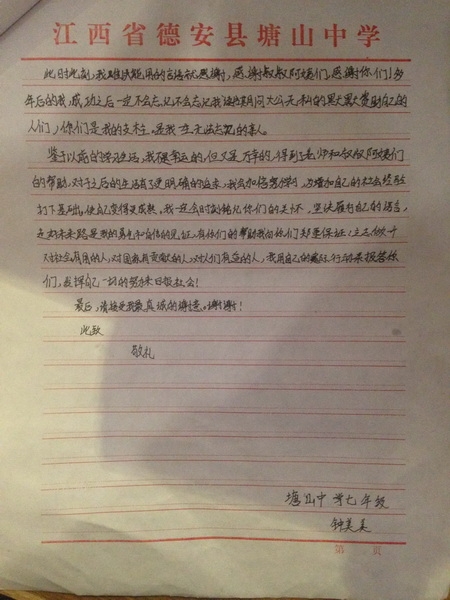 江西省德安县塘山中学
此时此刻,我难以能用的言语就感谢,感谢叔叔阿姨们,感谢你们!多
年后的我,成功之后一定不会忘记不会忘记我读书期间大公无私的默默资助自己的
人们,你们是我的支柱。是我一生无法忘记的亲人。
鉴于以前的学习生活,我不是幸运的,但又是万幸的,得到了老师和叔叔阿姨们
的帮助,对于之后的生活有了更明确的追求,我会加倍学习,为增加自己的社会经验
打下基础,使自己变得更成熟。我一定会时刻铭记你们的关怀,坚决履行自己的诺言,
走好未来路是我的勇气和自信的见证,有你们的帮助我向你们郑重保证:立志做个
对社会有用的人,对国家有贡献的人,对人们有益的人,我用自己的实际行动来报答你
们,发挥自己一切的努力来回报社会!
最后,请接受我最真诚的谢意。谢谢!
此致
敬礼
塘山中学七年级
钟美美
第 页